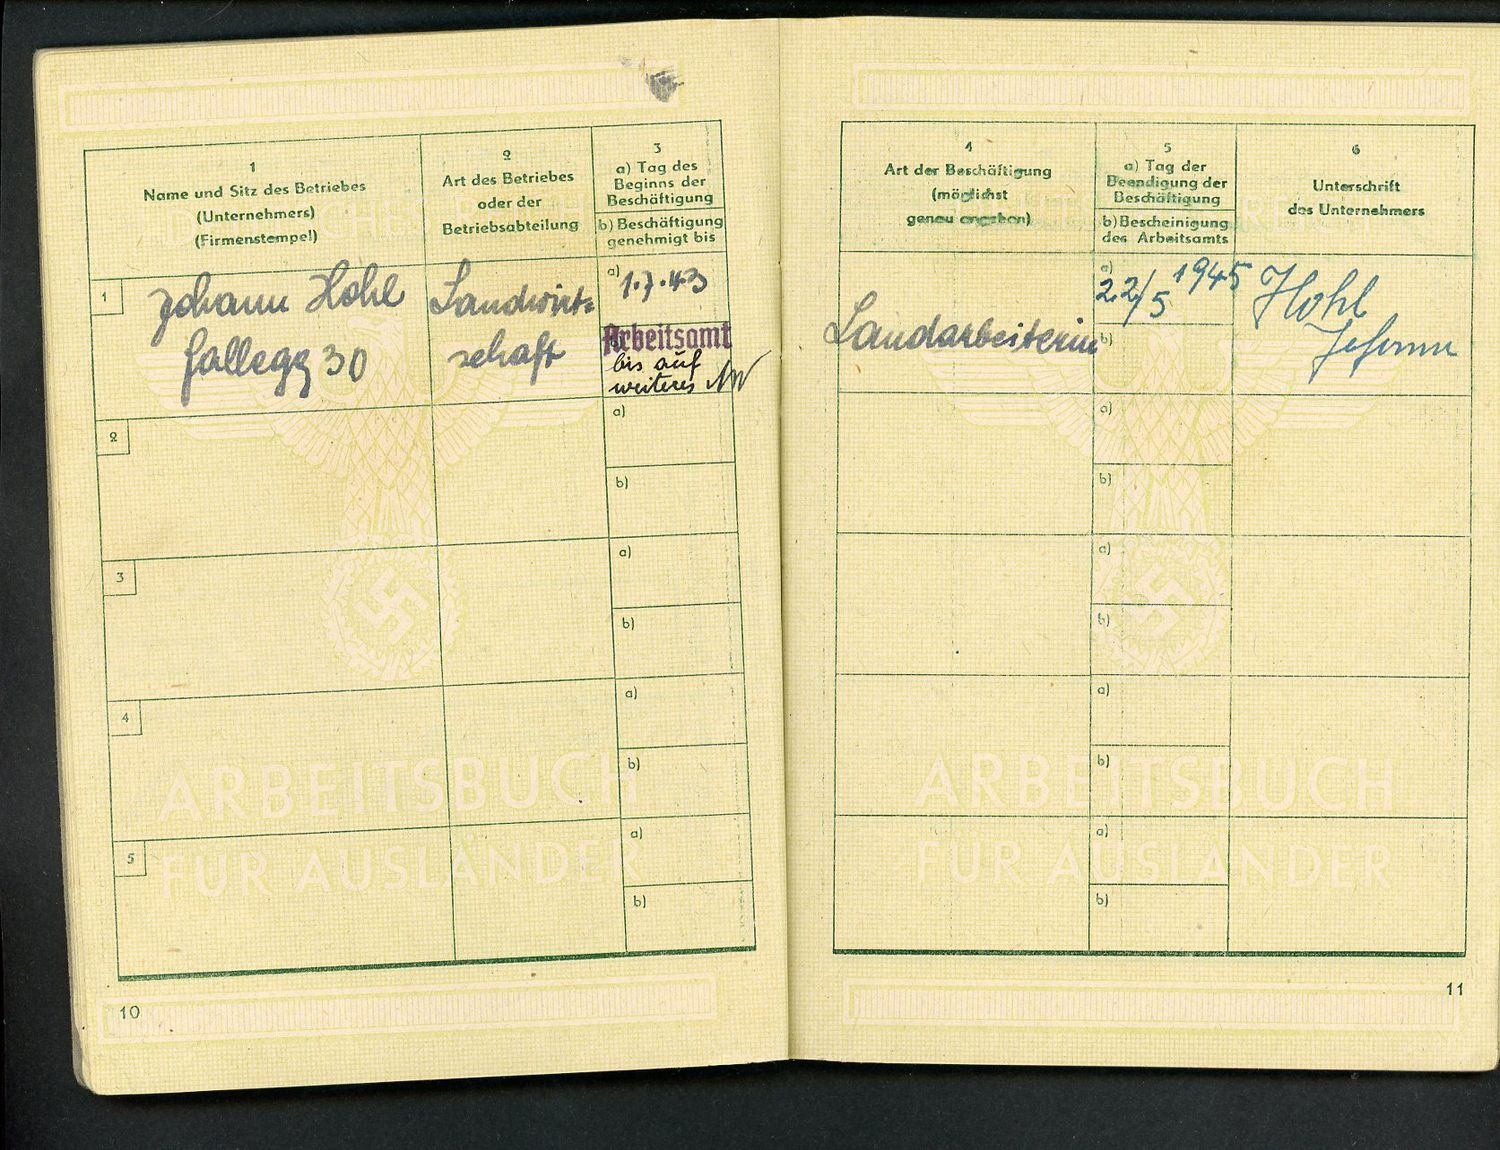 1
Name und Sitz des Betriebes
(Unternehmers)
(Firmenstempel)
2
Art des Betriebes
oder der
Betriebsabteilung
3
a) Tag des
Beginns der
Beschäftigung
b) Beschäftigung
genehmigt bis
1
Johann Hohl
Gallegg 30
Landwirt-
schaft
a)
1.7.43
Arbeitsamt
bis auf
weiteres
2
a)
b)
3
a)
b)
4
a)
b)
5
a)
b)
ARBEITSBUCH
FÜR AUSLÄNDER
10
4
Art der Beschäftigung
(möglichst
genau angeben)
5
a) Tag der
Beendigung der
Beschäftigung
b) Bescheinigung
des Arbeitsamts
6
Unterschrift
des Unternehmers
Landarbeiterin
a)
22/5 1945
b)
Hohl
Johann
a)
b)
a)
b)
a)
b)
a)
b)
ARBEITSBUCH
FÜR AUSLÄNDER
11